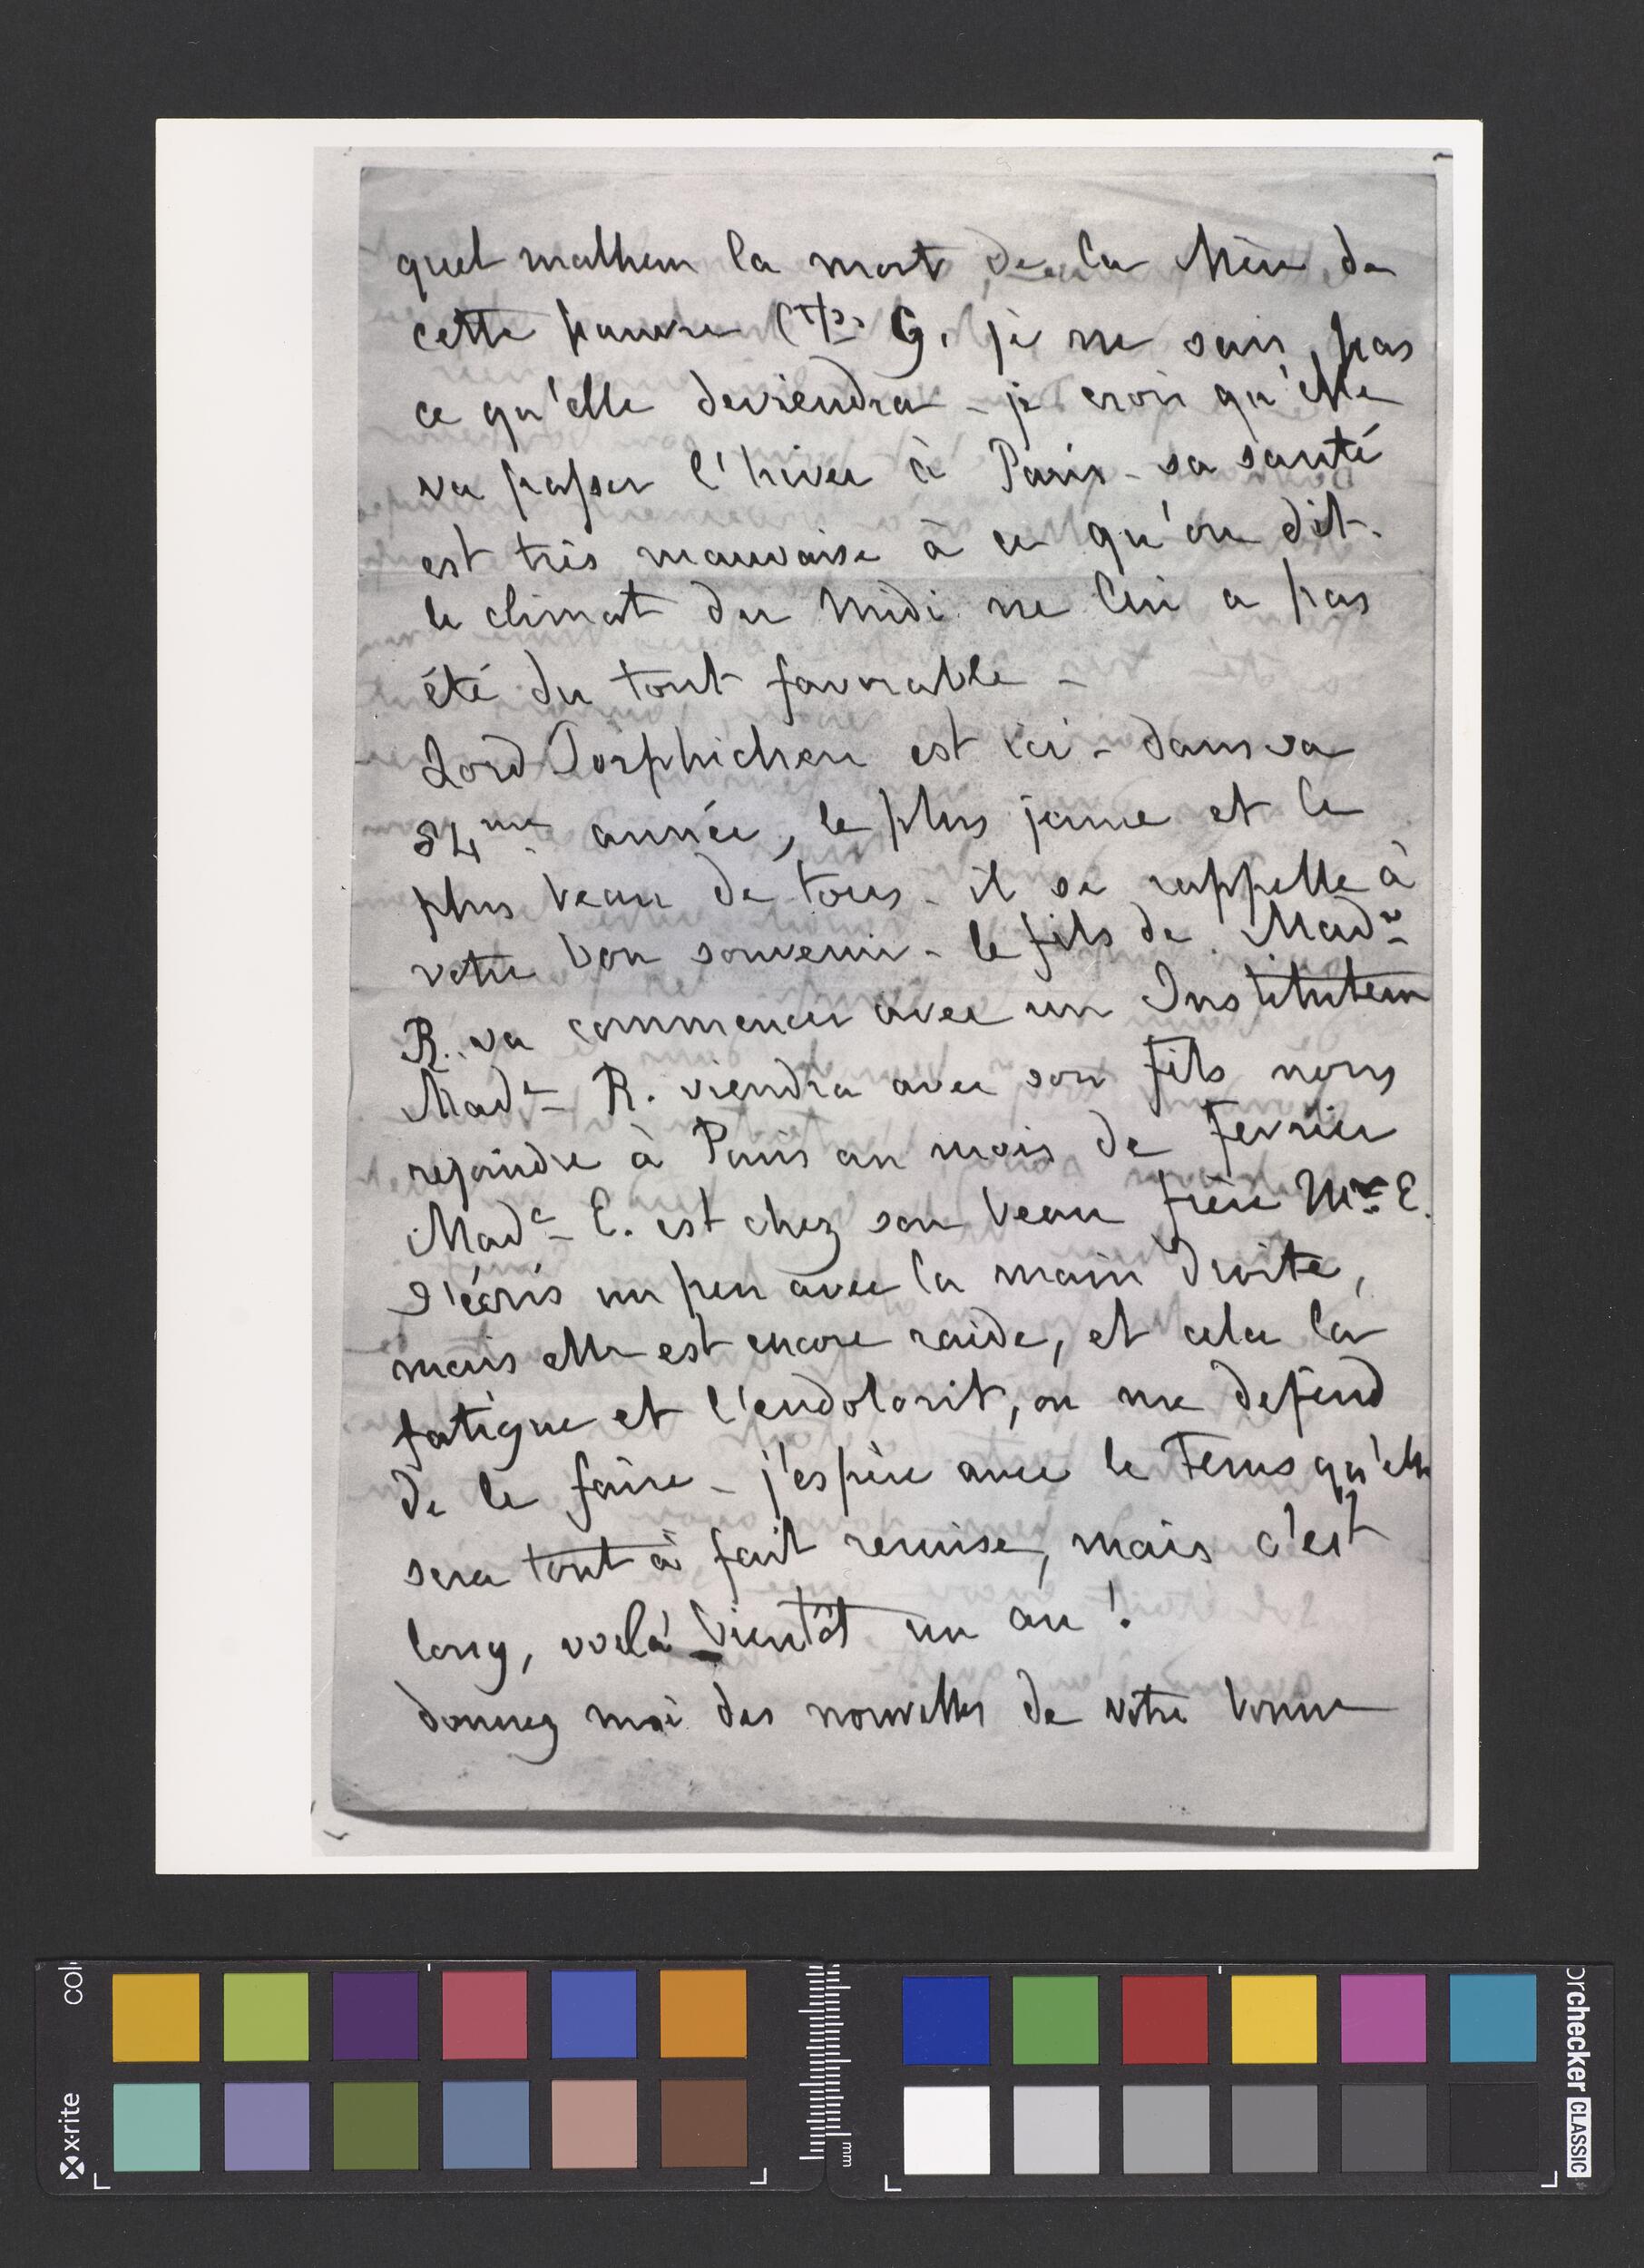 quel malheur la mort de la Mère de
cette pauvre Ctsse G. je ne sais pas
ce qu'elle deviendra - je crois qu'elle
va passer l'hiver à Paris - sa santé
est très mauvaise à ce qu'on dit.
le climat du Midi ne lui a pas
été du tout favorable -
Lord Torphichen est ici - dans sa
84me année, le plus jeune et le
plus beau de tous - il se rappelle à
votre bon souvenir - le fils de Made
R. va commencer avec un Instituteur
Made R. viendra avec son fils nous
rejoindre à Paris au mois de Fevrier
Made E. est chez son beau frère Mr E.
J'écris un peu avec la main droite,
mais elle est encore raide, et cela la
fatigue et l'endolorit, on me defend
de le faire - j'espère avec le Tems qu'elle
sera tout à fait remise, mais c'est
long, voilà bientôt un an !
donnez moi des nouvelles de votre bonne
x-rite
col
mm
orchecker CLASSIC